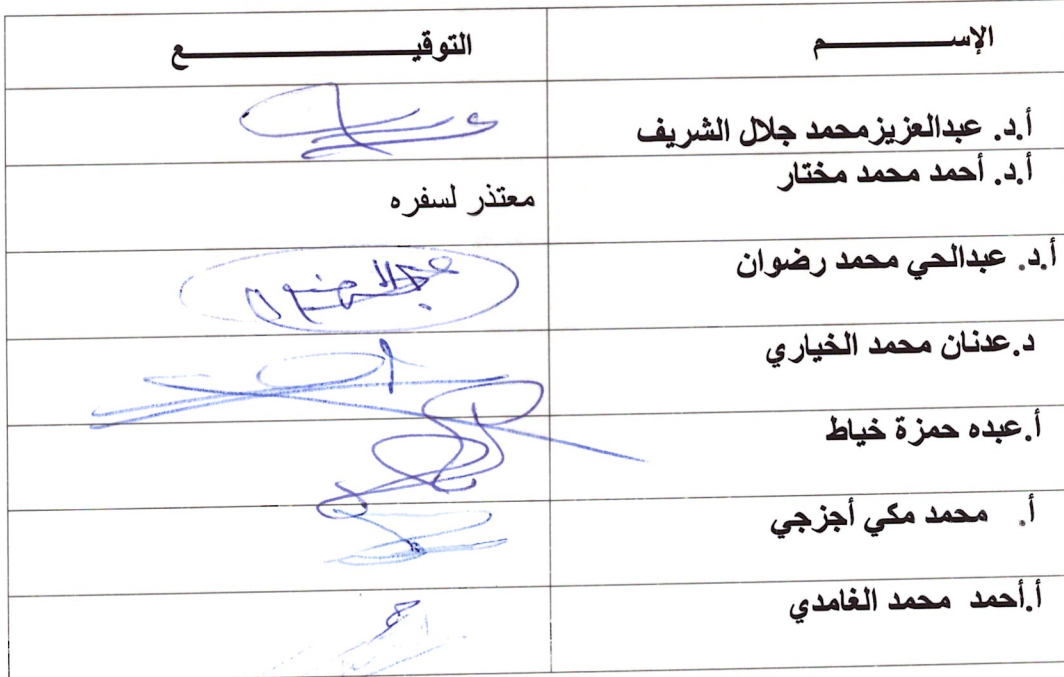 الإســـــــــم
التوقيـــــــــــــــــــــع
أ.د. عبدالعزيزمحمد جلال الشريف
أ.د. أحمد محمد مختار
معتذر لسفره
أ.د. عبدالحي محمد رضوان
د.عدنان محمد الخياري
أ.عبده حمزة خياط
أ. محمد مكي أجزجي
أ.أحمد محمد الغامدي